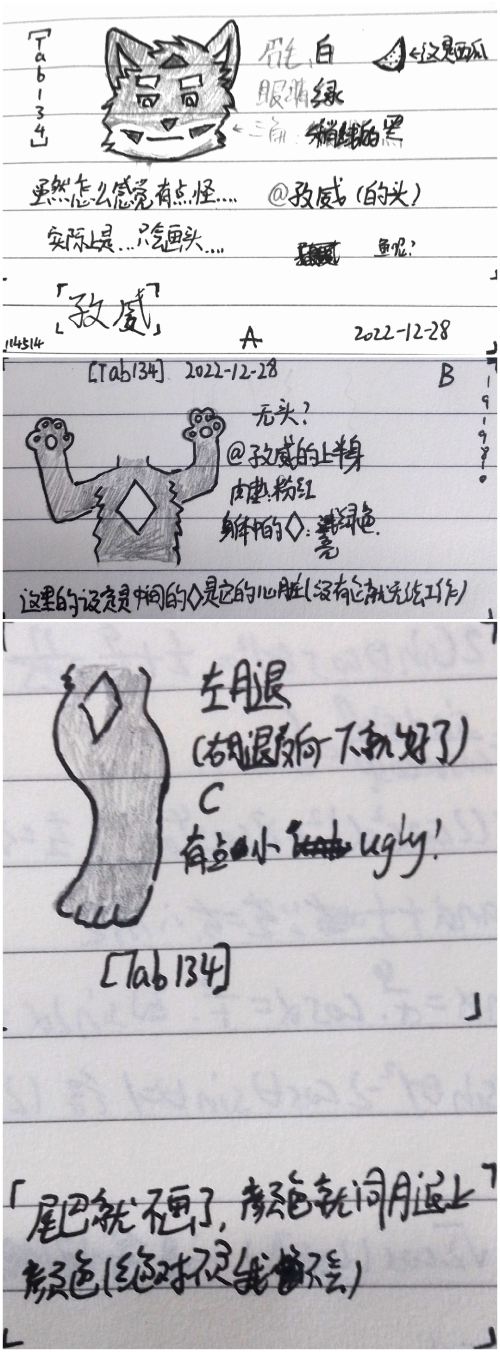 [Tab134]
白
←这是西瓜
绿
三角:
黑
虽然怎么感觉有点怪....
@孜威 (的头)
实际上是...只会画头....
鱼呢?
「孜威」
114514
A
2022-12-28
[Tab134] 2022-12-28
B
191980
无头?
@孜威的上半身
肉垫:粉红
身体中的◇:绿色.
亮
这里的设定是中间的◇是它的心脏(没有它就无法工作)
左月退
(右月退反向一下就好了)
C
有点小 ugly!
[Tab 134]
」
「尾巴就不画了,颜色就同月退上」
颜色(绝对不是我不会)